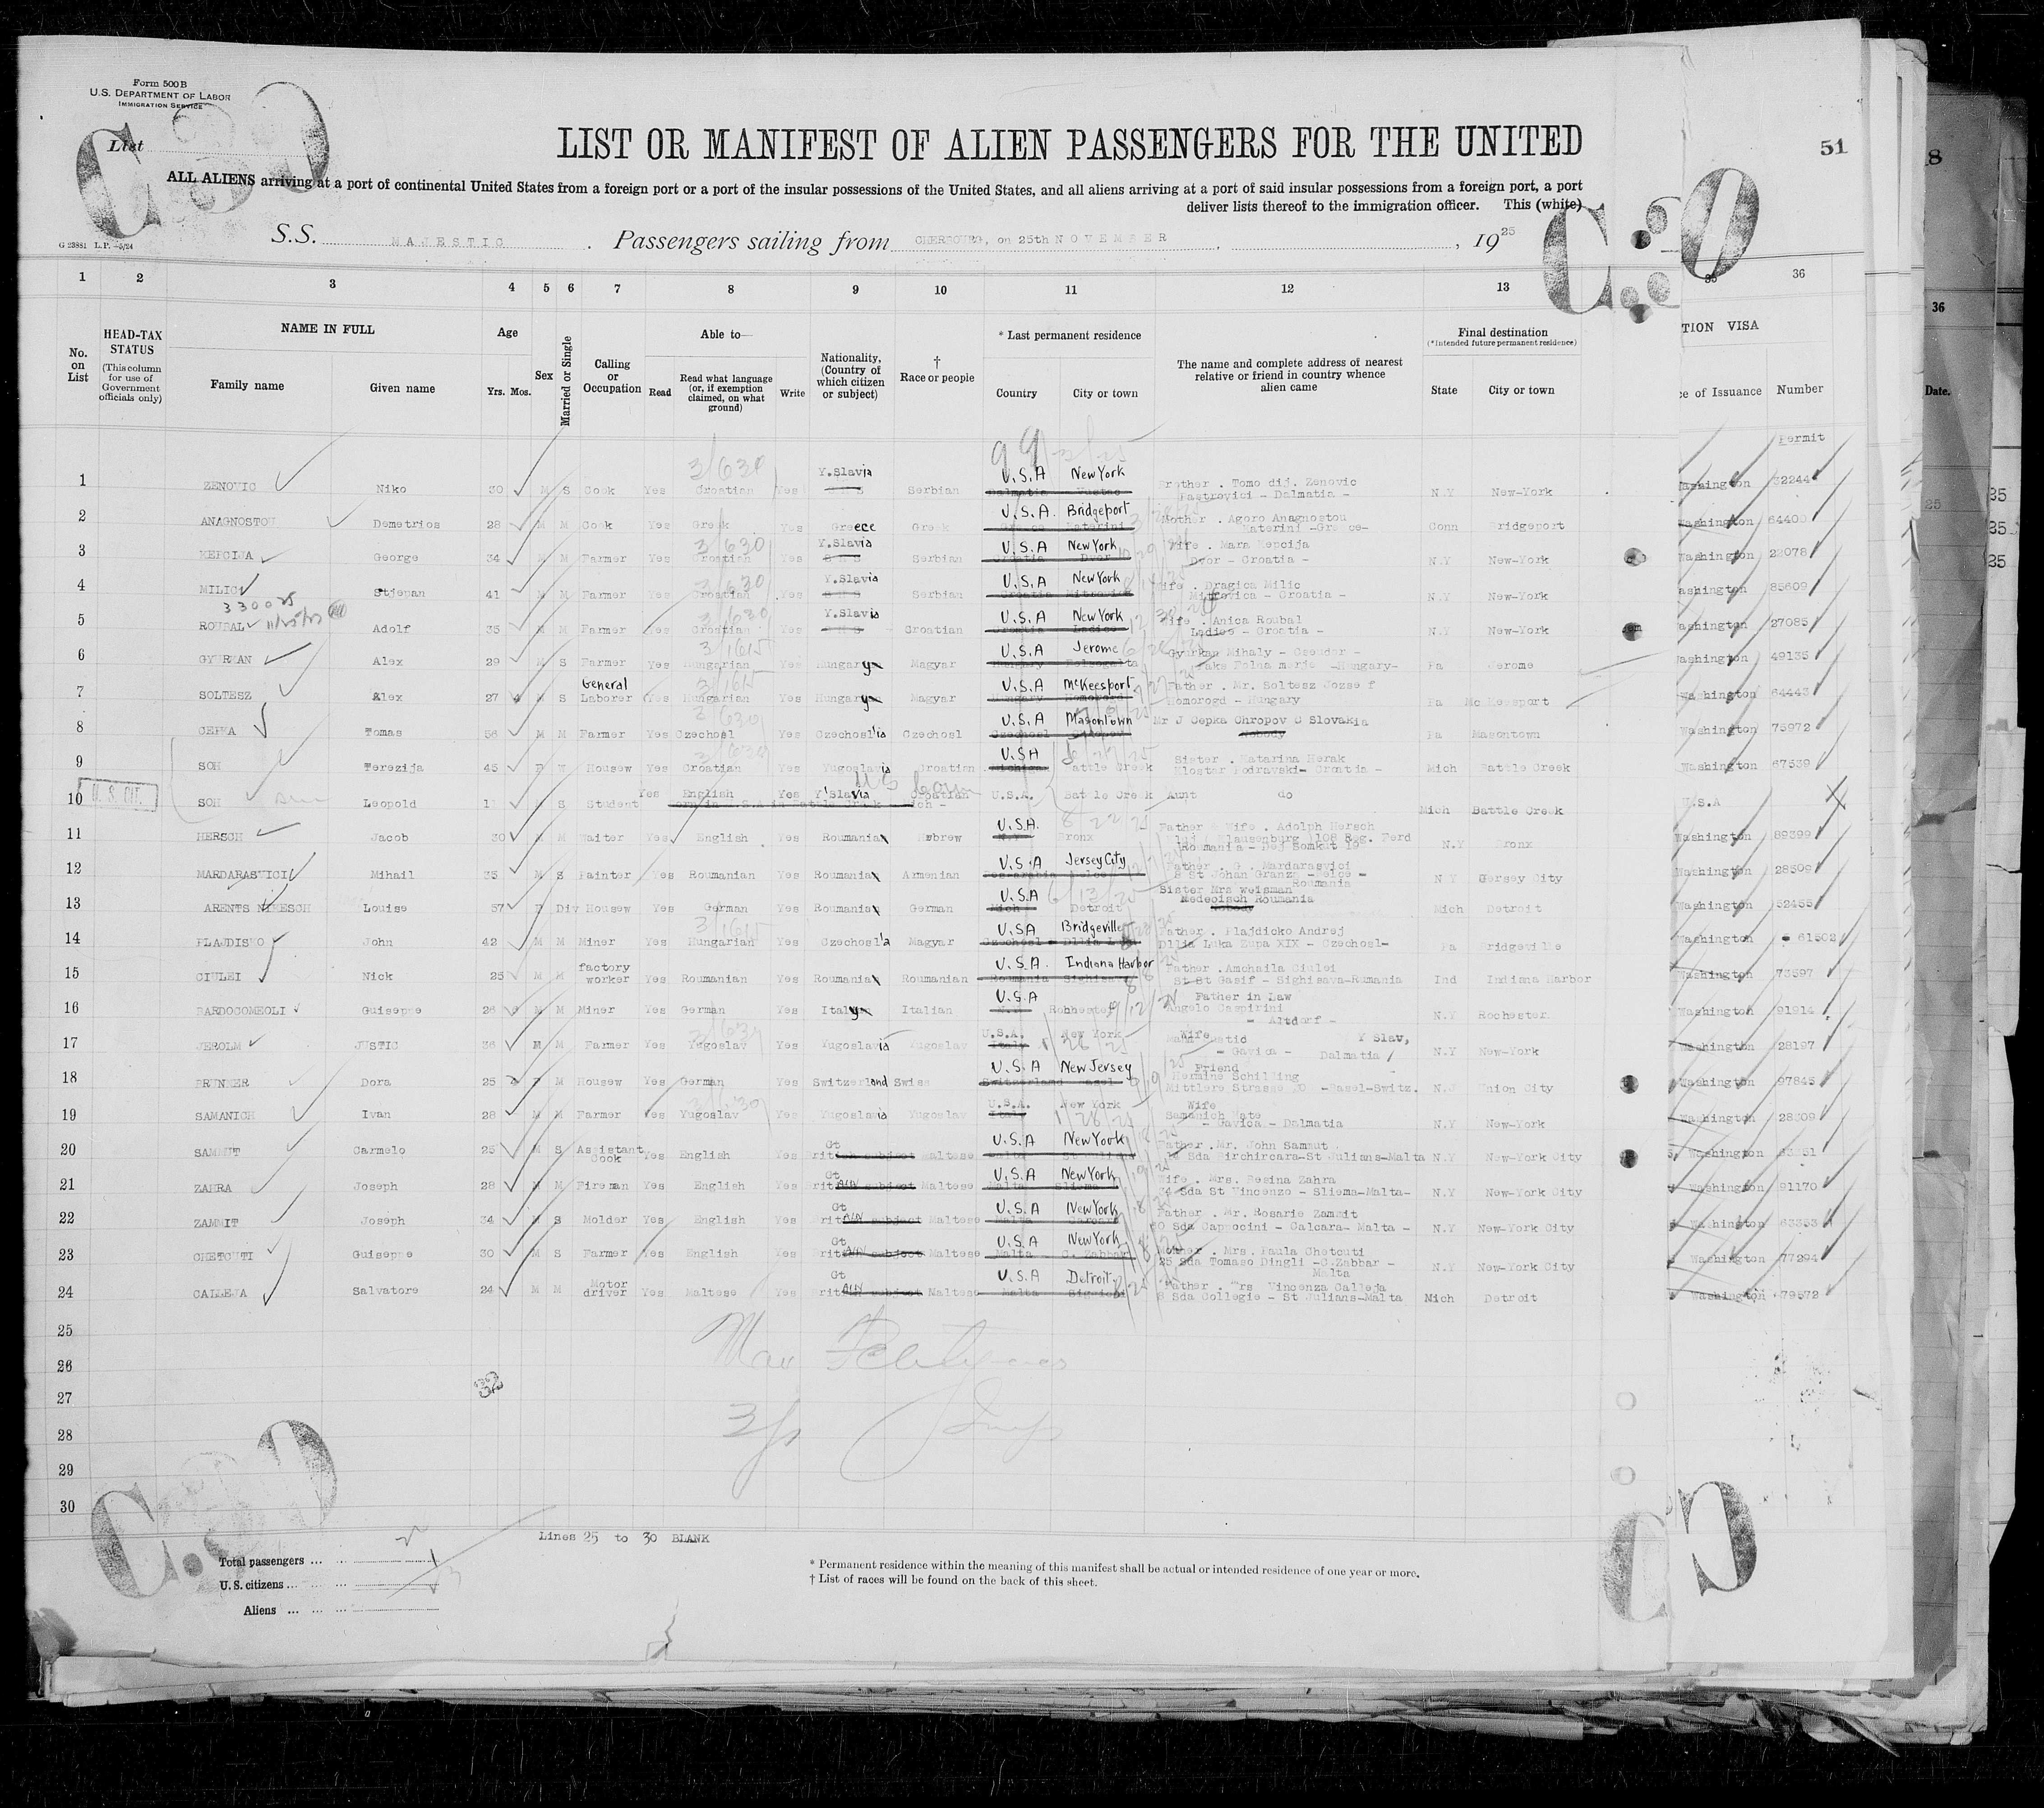 Form 500 B
U.S. DEPARTMENT OF LABOR
IMMIGRATION SERVICE
List
LIST OR MANIFEST OF ALIEN PASSENGERS FOR THE UNITED
51
8
ALL ALIENS arriving at a port of continental United States from a foreign port or a port of the insular possessions of the United States, and all aliens arriving at a port of said insular possessions from a foreign port, a port
deliver lists thereof to the immigration officer. This (white)
G 23881 L.P.—5/24
S.S. MAJESTIC. Passengers sailing from CHERBOURG, on 25th NOVEMBER, 1925
1 2 3 4 5 6 7 8 9 10 11 12 13 36
No. on List
HEAD-TAX STATUS
(This column for use of Government officials only)
NAME IN FULL
Family name Given name
Age
Yrs. Mos.
Sex
Married or Single
Calling or Occupation
Able to—
Read Read what language (or, if exemption claimed, on what ground) Write
Nationality, (Country of which citizen or subject)
† Race or people
* Last permanent residence
Country City or town
The name and complete address of nearest relative or friend in country whence alien came
Final destination
(*Intended future permanent residence)
State City or town
TION VISA
ce of Issuance Number
36
Date.
Permit
1 ZENOVIC Niko 30 M S Cook Yes Croatian Yes Y.Slavia Serbian U.S.A New York Tomo dij. Zenovic Pastrovici - Dalmatia - N.Y New-York Washington 32244
2 ANAGNOSTOU Demetrios 28 M M Cook Yes Greek Yes Greece Greek U.S.A. Bridgeport Mother . Agoro Anagnostou Katerini -Greece- Conn Bridgeport Washington 64400
3 KEPCIJA George 34 M M Farmer Yes Croatian Yes Y.Slavia Serbian U.S.A New York Wife . Mara Kepcija Dvor - Croatia - N.Y New-York Washington 22078
4 MILIC Stjepan 41 M M Farmer Yes Croatian Yes Y.Slavia Serbian U.S.A New York Wife . Dragica Milic Mitrovica - Croatia - N.Y New-York Washington 85609
5 ROUBAL Adolf 35 M M Farmer Yes Croatian Yes Y.Slavia Croatian U.S.A New York Wife . Anica Roubal - Croatia - N.Y New-York Washington 27085
6 GYURKAN Alex 29 M S Farmer Yes Hungarian Yes Hungary Magyar U.S.A Jerome Gyurkan Mihaly -Hungary- Pa Jerome Washington 49135
7 SOLTESZ Alex 27 4 M S General Laborer Yes Hungarian Yes Hungary Magyar U.S.A McKeesport Father . Mr. Soltesz Jozsef Homorogd - Hungary Pa Mc Keesport Washington 64443
8 CEPKA Tomas 56 M M Farmer Yes Czechosl Yes Czechosl'ia Czechosl U.S.A Masontown Mr J Cepka Chropov C Slovakia Pa Masontown Washington 75972
9 SOH Terezija 45 F Housew Yes Croatian Yes Yugoslavia Croatian U.S.A Battle Creek Sister . Katarina Herak Klostar Podravski- Croatia - Mich Battle Creek Washington 67539
10 U. S. CIT. SOH Leopold 11 M S Student Yes English Yes Y'Slavia Croatian US born U.S.A. Battle Creek Aunt do Mich Battle Creek U.S.A
11 HERSCH Jacob 30 M M Waiter Yes English Yes Roumania Hebrew U.S.A. Bronx Father & Wife . Adolph Hersch N.Y Bronx Washington 89399
12 Mihail 35 M S Painter Yes Roumanian Yes Roumania Armenian U.S.A Jersey City Father . G . Mardarasvici Roumania N Y Gersey City Washington 28509
13 ARENTS NIKESCH Louise 57 F Div Housew Yes German Yes Roumania German U.S.A Detroit Sister Mrs Weisman Medebisch Roumania Mich Detroit Washington 52455
14 PLAJDISKO John 42 M M Miner Yes Hungarian Yes Czechosl'a Magyar U.S.A Bridgeville Father . Plajdicko Andrej Dllia Luka Zupa XIX - Czechosl- Pa Bridgeville Washington 61502
15 CIULEI Nick 25 M M factory worker Yes Roumanian Yes Roumania Roumanian U.S.A. Indiana Harbor Father .Amchaila Ciulei St St Gasif - Sighisava-Rumania Ind Indiana Harbor Washington 73597
16 BARDOCOMEOLI Guiseppe 26 M M Miner Yes German Yes Italy Italian U.S.A Rochester Father in Law Angelo Caspirini - Altdorf - N.Y Rochester Washington 91914
17 JEROLM JUSTIC 36 M M Farmer Yes Yugoslav Yes Yugoslavia Yugoslav U.S.A. New York Wife - Gavica - Dalmatia Y Slav, N.Y New-York Washington 28197
18 BRUNNER Dora 25 F M Housew Yes German Yes Switzerland Swiss U.S.A New Jersey Friend Hermine Schilling Mittlere Strasse 20 -Basel-Switz. N.J Union City Washington 97845
19 SAMANICH Ivan 28 M M Farmer Yes Yugoslav Yes Yugoslavia Yugoslav U.S.A. New York Wife Samanich Mate - Gavica - Dalmatia N.Y New-York Washington 28309
20 SAMMUT Carmelo 25 M S Assistant Cook Yes English Yes Gt Brit Maltese U.S.A New York Father .Mr. John Sammut Sda Birchircara-St Julians-Malta N.Y New-York City Washington
21 ZAHRA Joseph 28 M M Fireman Yes English Yes Gt Brit Maltese U.S.A New York Wife . Mrs. Resina Zahra 74 Sda St Vincenzo - Sliema-Malta- N.Y New-York City Washington 91170
22 ZAMMIT Joseph 34 M S Molder Yes English Yes Gt Brit Maltese U.S.A New York Father . Mr. Rosarie Zammit 50 Sda Cappocini - Calcara- Malta - N.Y New-York City Washington 63353
23 CHETCUTI Guiseppe 30 M S Farmer Yes English Yes Gt Brit Maltese U.S.A New York Mother . Mrs. Paula Chetcuti 25 Sda Tomaso Dingli -C.Zabbar - Malta N.Y New-York City Washington 77294
24 CALLEJA Salvatore 24 M M Motor driver Yes Maltese Yes Gt Brit Maltese U.S.A Detroit Vincenza Calleja 8 Sda Collegie - St Julians-Malta Mich Detroit Washington 79572
25
26
27
28
29
30
Lines 25 to 30 BLANK
Total passengers ... ...
U. S. citizens ... ... ...
Aliens ... ... ...
* Permanent residence within the meaning of this manifest shall be actual or intended residence of one year or more.
† List of races will be found on the back of this sheet.